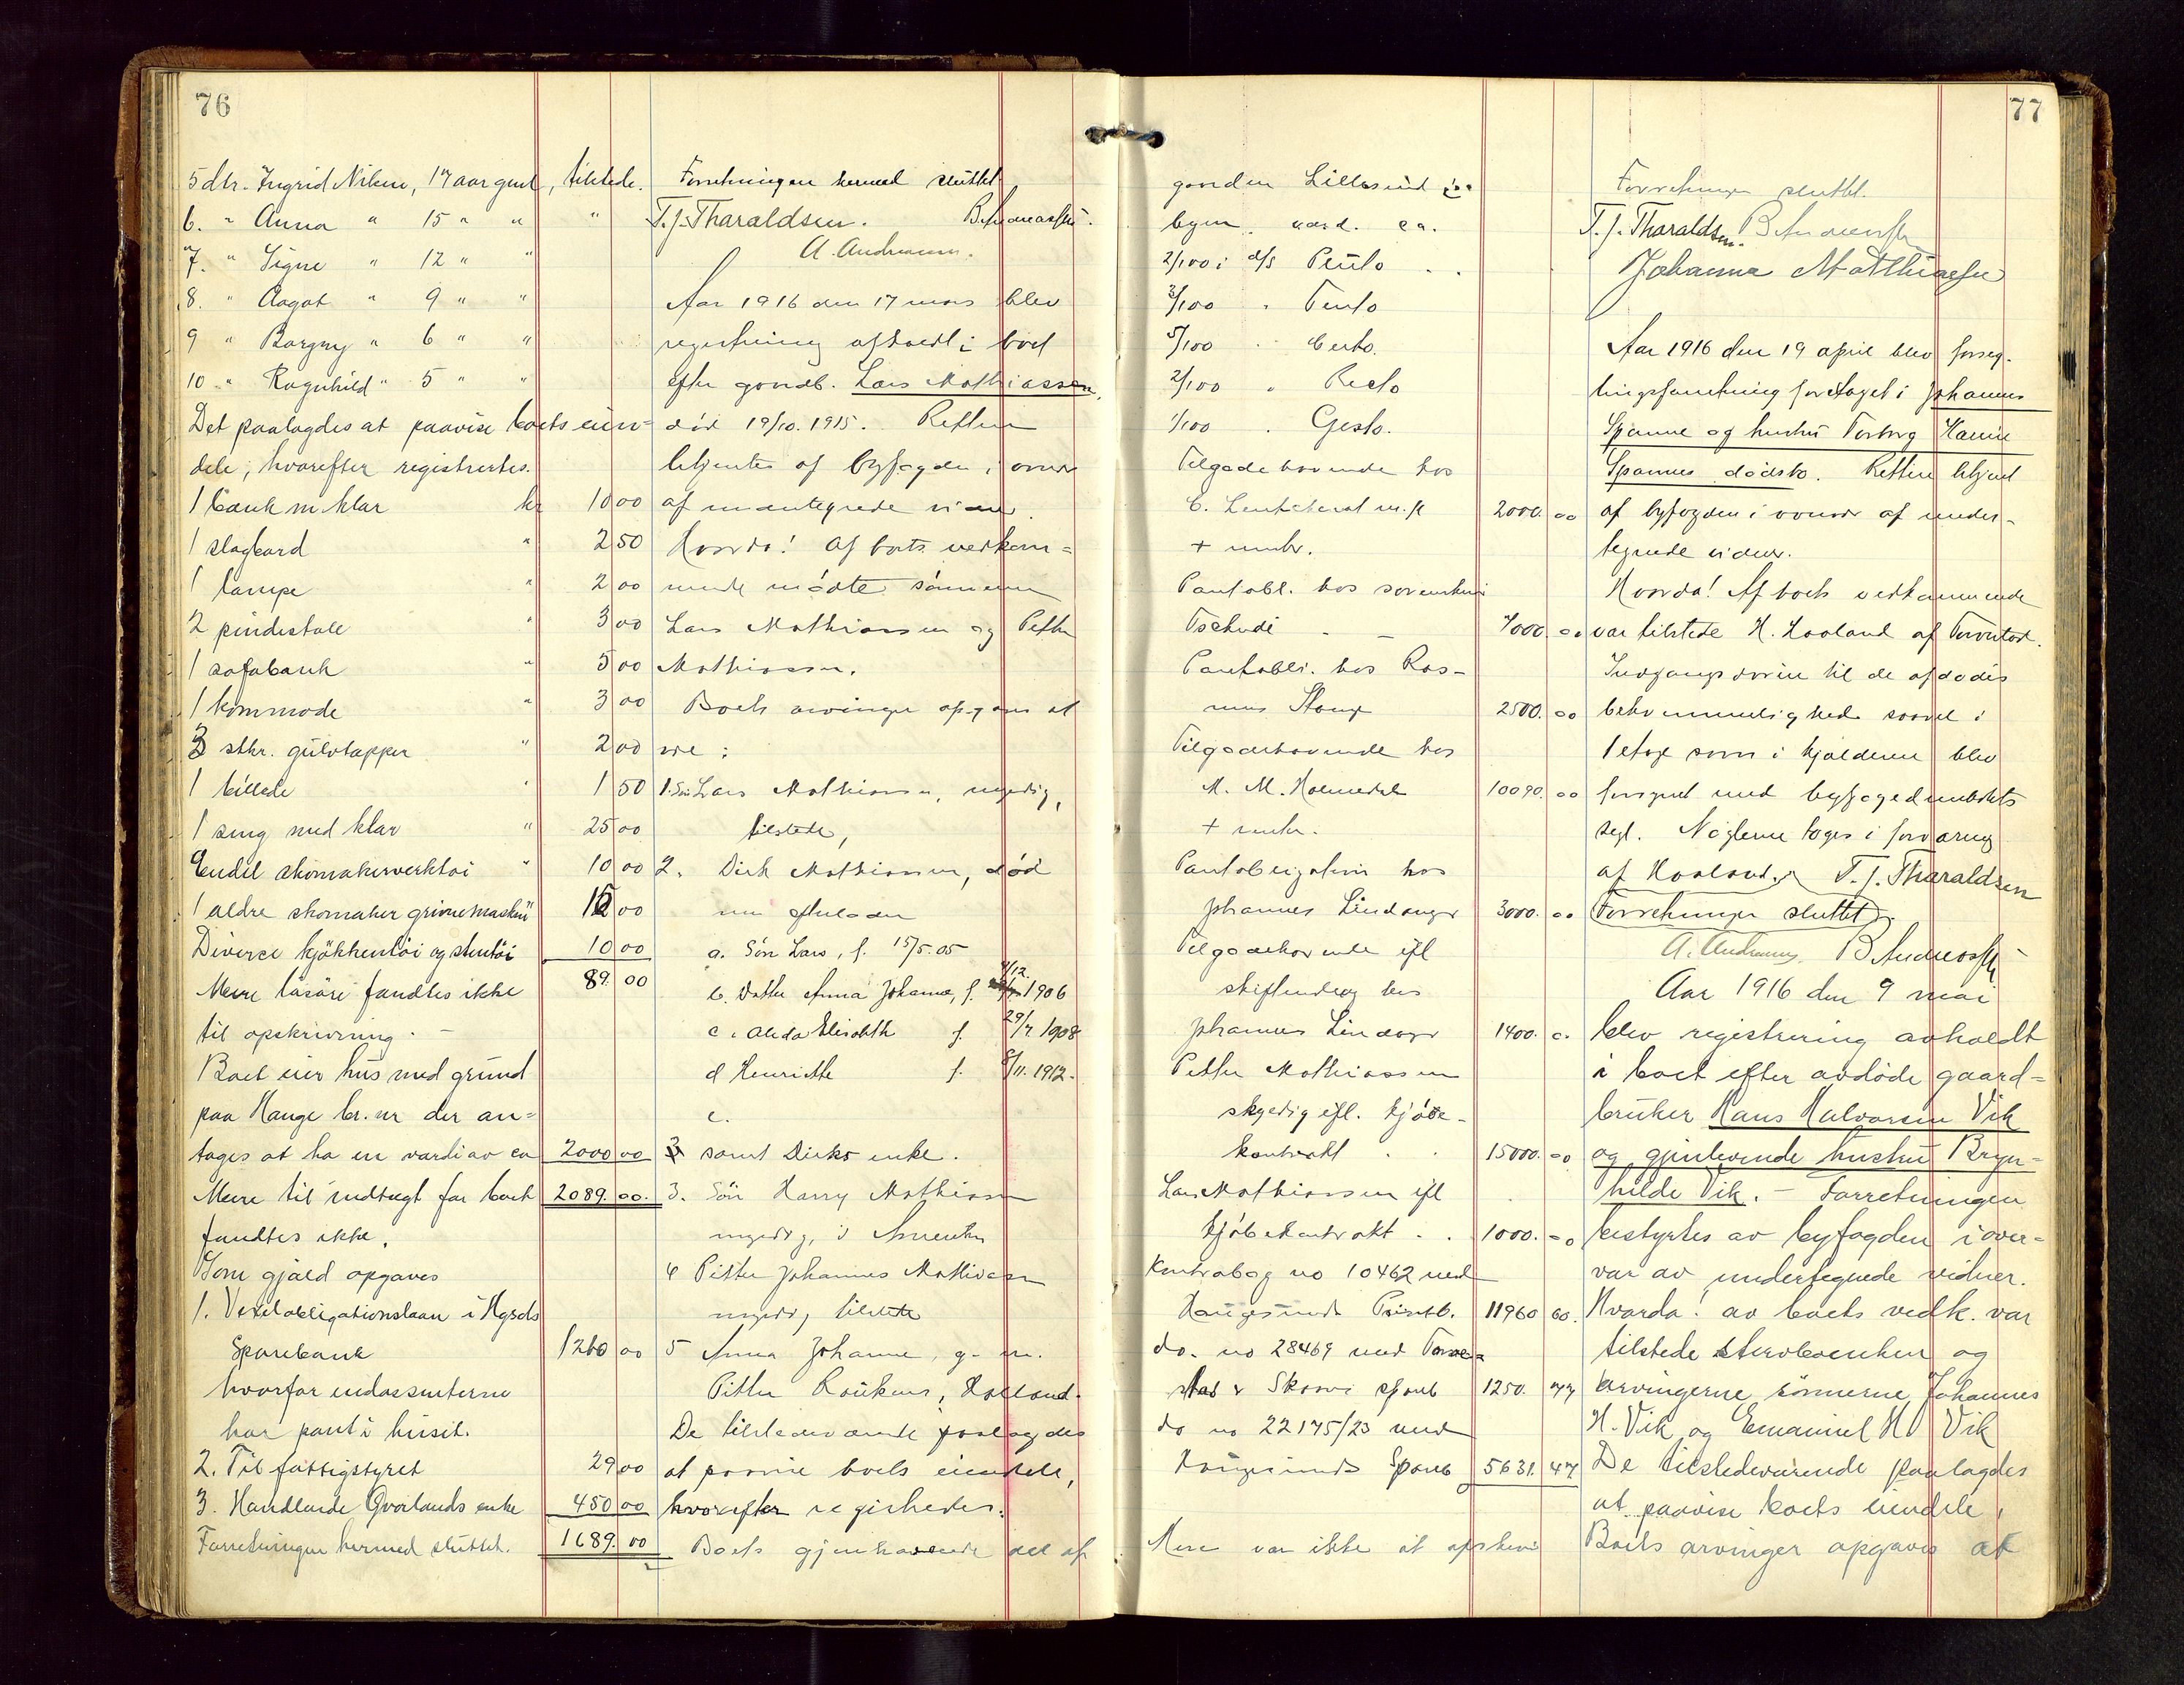 76
5 dtr. Ingrid Nilsen, 17 aar gml, tilstede.
6. " Anna " 15 " " "
7. " Signe " 12 " "
8. " Aagot " 9 " "
9 " Borgny " 6 " "
10 " Ragnhild " 5 " "
Det paalagdes at paavise boets eien-
dele, hvorefter registrertes.
1 bænk m klær kr 10 00
1 slagbord " 2 50
1 lampe " 2 00
2 pindestole " 3 00
1 sofabænk " 5 00
1 kommode " 3 00
3 stkr. gulvtæpper " 2 00
1 billede " 1 50
1 seng med klær " 25 00
Endel skomakerverktøi " 10 00
1 ældre skomaker maskin " 15 00
Diverse kjøkkentøi og stentøi 10 00
Mere løsøre fandtes ikke 89. 00
til opskrivning. –
Boet eier hus med grund
paa Hauge br. nr der an-
tages at ha en værdi av ca 2000 00
Mere til indtægt for boet 2089. 00.
fandtes ikke.
Som gjæld opgaves
1. Vexelobligationslaan i Hgsds
Sparebank 1260 00
hvorfor endossenterne
har pant i huset.
2. Til fattigstyret 29 00
3. Handlende Qvalands enke 450 00
Forretningen hermed sluttet. 1689. 00
Forretningen hermed sluttet
T. J. Tharaldsen. B. Andreassen.
A. Andreassen.
Aar 1916 den 17 mars blev
registrering afholdt i boet
efter gaardb. Lars Mathiassen,
død 19/10. 1915. Retten
betjentes af byfogden i overv
af undertegnede vidner.
Hvorda! Af boets vedkom-
mende mødte sønnerne
Lars Mathiassen og Petter
Mathiassen.
Boets arvinger opgaves at
være:
1. Søn Lars Mathiassen, myndig,
tilstede,
2. Dirk Mathiassen, død
men efterlader
a. Søn Lars, f. 15/5.05
b. Datter Anna Johanne, f. 1906
c. Alida Elisabeth f. 29/7 1908
d Henriette f. 8/11. 1912.
e.
samt Dirks enke.
3. Søn Harry Mathiassen
myndig, i Amerika
4 Petter Johannes Mathiassen
myndig tilstede
5 Anna Johanne, g. m.
Petter
De tilstedeværende paalagdes
at paavise boets eiendele,
hvorefter registredes.
Boets gjenhavende del af
77
gaarden Lillesund i
byen værd. ca.
2/100 i d/s Pluto . .
3/100 " Tento
5/100 " Certo.
2/100 " Recto
1/100 . Gesto.
Tilgodehavende hos
C. 2000. 00
+ renter.
Pantobl. hos
Tschudi - 7000. 00
Pantobli. hos Ras-
mus 2500. 00
Tilgodehavende hos
M. M. Holmedal 10090. 00
+ renter.
Pantobligation hos
Johannes Lindanger 3000. 00
Tilgodehavende ifl
hos
Johannes 1400. 0.
Petter Mathiassen
skyldig ifl. kjøbe-
kontrakt . . 15000. 00
Lars Mathiassen ifl
kjøbekontrakt . . 1000. 00
Kontrabog no 10462 med
Haugesunds Privatb. 11960 60.
do. no 28469 med Torve-
stad & Skaare spareb 1250. 77
do no 22175/23 med
Haugesunds Spareb 5631. 47
Mere var ikke at opskrive
Forretningen sluttet.
T. J. Tharaldsen. B. Andreassen
Johanna Matthiassen
Aar 1916 den 19 april blev forseg-
lingsforretning foretaget i Johannes
Spanne og hustru Torborg Hanne
Spannes dødsbo. Retten betjent
af byfogden i overvær af under-
tegnede vidner.
Hvorda! Af boets vedkommende
var tilstede H. Haaland af Torvestad.
Indgangsdøren til de afdødes
bekvemmelighed saavel i
1 etage som i kjælderen blev
forseglet med byfogedembedets
segl. Nøglerne toges i forvaring
af Haaland. T. J. Tharaldsen
Forretningen sluttet.
A. Andreassen B. Andreassen
Aar 1916 den 9 mai
blev registrering avholdt
i boet efter avdøde gaard-
bruker Hans Halvorsen Vik
og gjenlevende hustru Bryn-
hilde Vik. – Forretningen
bestyrtes av byfogden i over-
vær av undertegnede vidner.
Hvorda! av boets vedk. var
tilstede sterboenken og
arvingerne sønnerne Johannes
H. Vik og Emanuel H Vik
De tilstedeværende paalagdes
at paavise boets eiendele,
Boets arvinger opgaves at